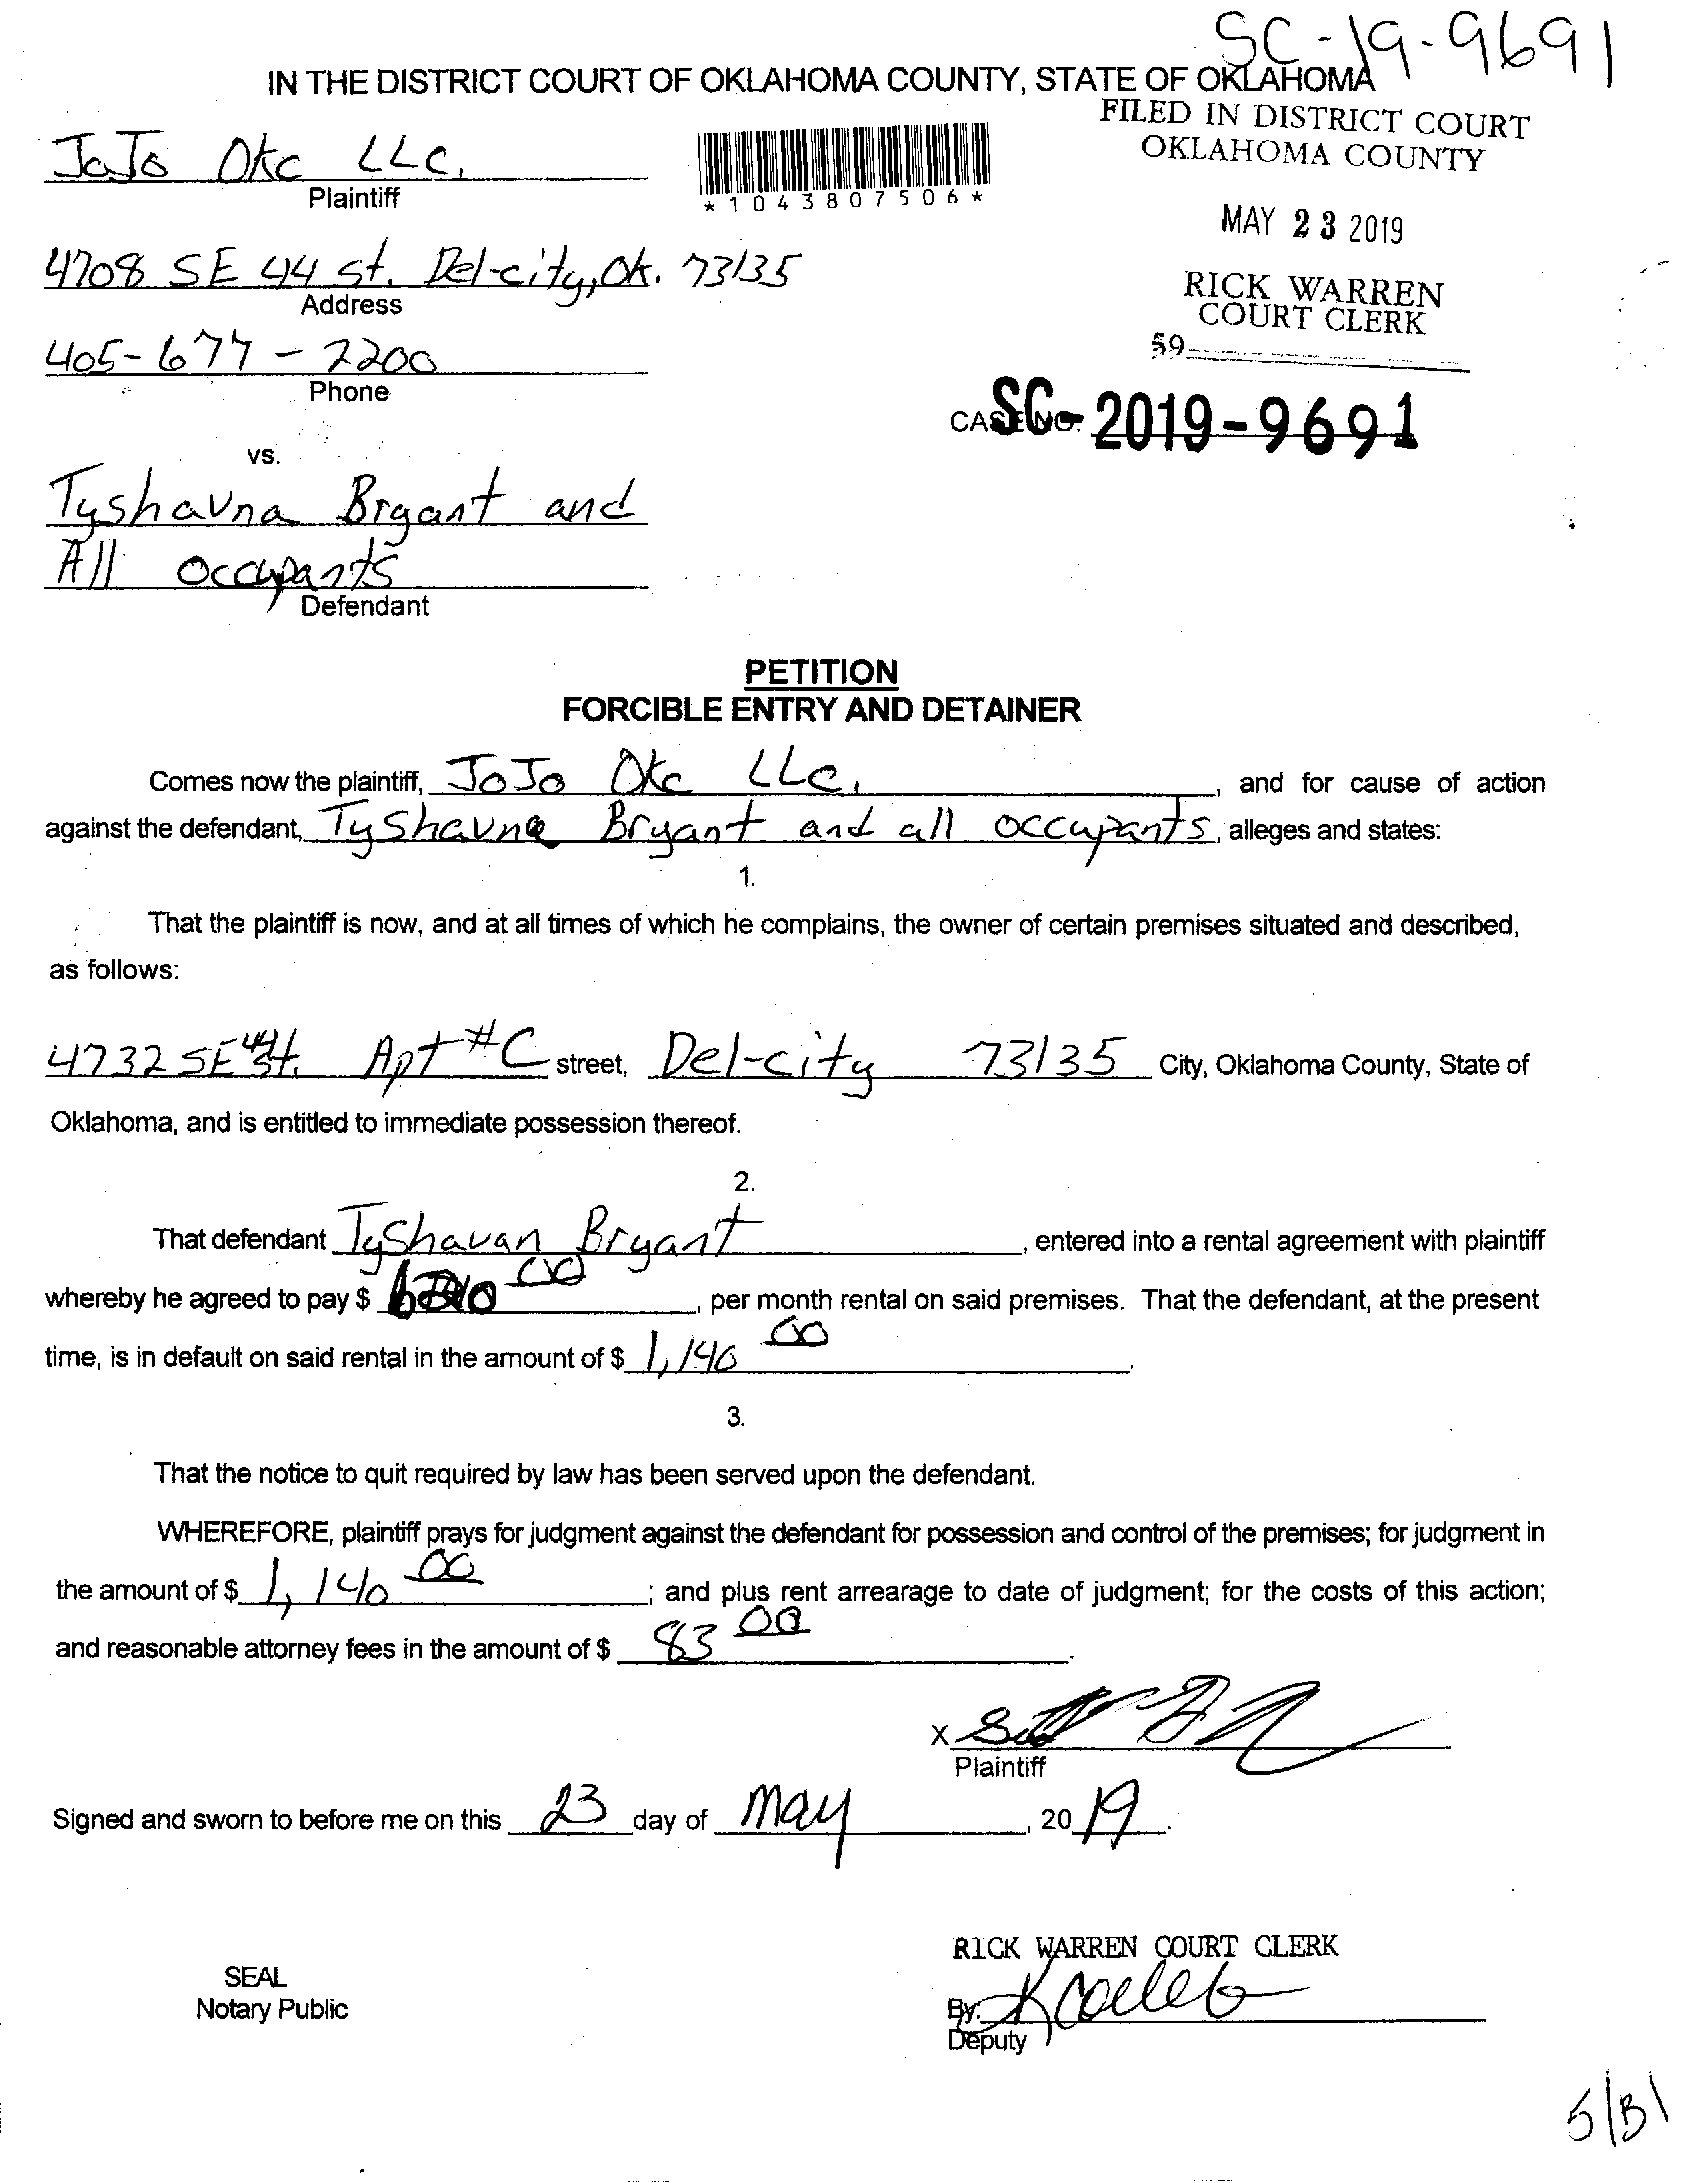 SC-19-9691
IN THE DISTRICT COURT OF OKLAHOMA COUNTY, STATE OF OKLAHOMA
FILED IN DISTRICT COURT
OKLAHOMA COUNTY
JoJo Okc LLC,
Plaintiff
*1043807506*
MAY 23 2019
4708 SE 44 st. Del-city, Ok. 73135
Address
RICK WARREN
COURT CLERK
59
405-677-7200
Phone
CASE NO. SC-2019-9691
vs.
Tyshavna Bryant and
All occupants
Defendant
PETITION
FORCIBLE ENTRY AND DETAINER
Comes now the plaintiff, JoJo Okc LLC, , and for cause of action
against the defendant, Tyshavna Bryant and all occupants, alleges and states:
1.
That the plaintiff is now, and at all times of which he complains, the owner of certain premises situated and described,
as follows:
4732 SE 44 st. Apt #C street, Del-city 73135 City, Oklahoma County, State of
Oklahoma, and is entitled to immediate possession thereof.
2.
That defendant Tyshavan Bryant , entered into a rental agreement with plaintiff
whereby he agreed to pay $ , per month rental on said premises. That the defendant, at the present
time, is in default on said rental in the amount of $ 1,140 00 .
3.
That the notice to quit required by law has been served upon the defendant.
WHEREFORE, plaintiff prays for judgment against the defendant for possession and control of the premises; for judgment in
the amount of $ 1,140 00 ; and plus rent arrearage to date of judgment; for the costs of this action;
and reasonable attorney fees in the amount of $ 83 00 .
X
Plaintiff
Signed and sworn to before me on this 23 day of May , 20 19 .
RICK WARREN COURT CLERK
SEAL
Notary Public
By:
Deputy
5/31